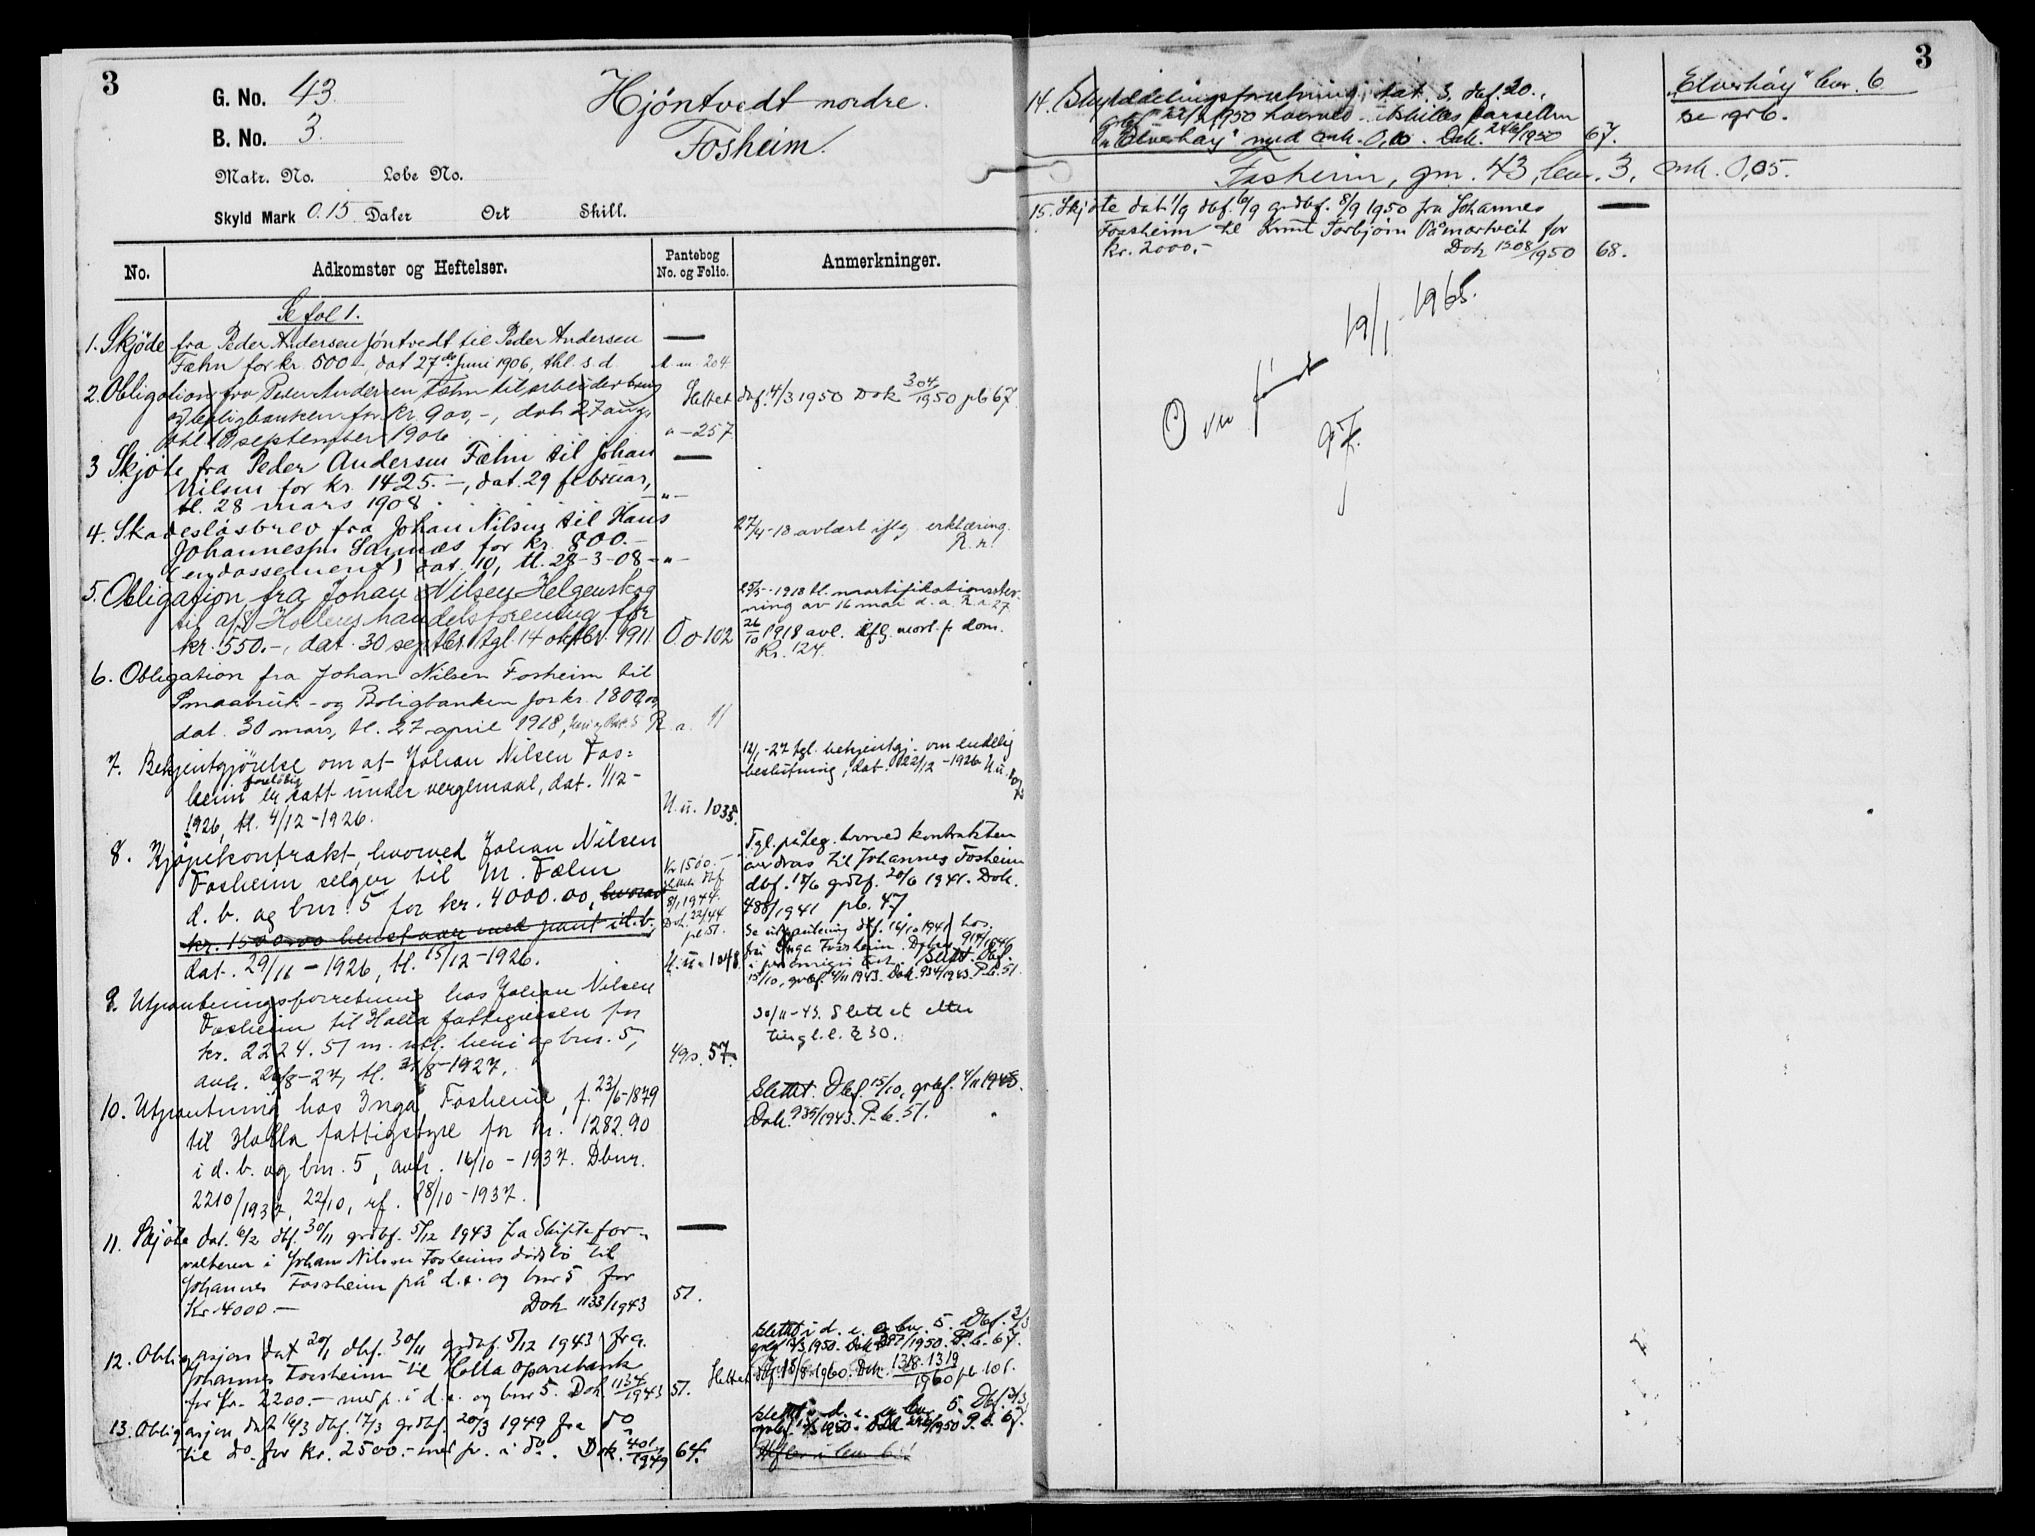 3
G. No. 43.
B. No. 3.
Matr. No. Løbe No.
Skyld Mark 0.15 Daler Ort Skill.
Hjöntvedt nordre.
Fosheim.
No. Adkomster og Heftelser. Pantebog No. og Folio. Anmerkninger.
Se fol 1.
1. Skjöde fra Peder Andersen Jöntvedt til Peder Andersen
Fæhn for kr. 500.-, dat 27de Juni 1906, thl. s. d. A. m. 204
2. Obligation fra Peder Andersen Fæhn til arbeiderbrug
og boligbanken for kr. 900,-, dat. 27 aug.
thl. 8 september 1906
" - 257
Slettet dbf. 4/3 1950 Dok 304/1950 pb 67.
3 Skjöte fra Peder Andersen Fæhn til Johan
Nilsen for kr. 1425.-, dat. 29 februar,
tl. 28 mars 1908. -"-
4. Skadeslösbrev fra Johan Nilsen til Hans
Johannessen Sannæs for kr. 800.-
(endossement) dat. 10, tl. 28-3-08 -"-
27/4-18 avlæst iflg erklæring.
R. n.
5. Obligation fra Johan Nilsen Helgenskog
til a/s Hollens handelsforening for
kr. 550.-, dat. 30 septbr. tgl. 14 oktbr. 1911 O. o 102
25/5-1918 tl. mortifikationsstev-
ning av 16 mai d. a. R a 27
26/10 1918 avl. iflg. mort. s dom.
R. 124.
6. Obligation fra Johan Nilsen Fosheim til
Smaabruk- og Boligbanken for kr. 1800,00
dat. 30 mars, tl. 27 april 1918, R a. 11
7. Bekjentgjörelse om at Johan Nilsen Fos=
heim er foreløbig satt under vergemaal, dat. 1/12-
1926, tl. 4/12-1926. U. u. 1035.
12/1-27 tgl. bekjentgj. om endelig
beslutning, dat. 22/12-1926 U u.
8. Kjöpekontrakt, hvorved Johan Nilsen
Fosheim selger til M. Fæhn
d. b. og bnr. 5 for kr. 4000.00, hvorav
kr. 1500.00 henstaar med pant i d. b.
dat. 29/11-1926, tl. 15/12-1926. U. u. 1048
Kr 1500.-
slettet dbf
8/1 1944.
Dok. 22/44
pb 51.
Tgl. påteg. hvorved kontrakten
overdras til Johannes Fosheim
dbf. 18/6 grdbf. 20/6 1941. Dok.
488/1941 pb. 47.
Se utpantning dbf. 16/10 1941 hos
fru Inga Fosheim. Dbnr 914/1941
Slettet. Dbf.
15/10, grbf. 4/11 1943. Dok. 934/1943. P.b. 51.
9. Utpantningsforretning hos Johan Nilsen
Fosheim til Holla fattigvesen for
kr. 2224.51 m. utl. heri og bnr. 5,
avh. 20/8-27, tl. 31/8-1927. 57.
30/11-43. Slettet etter
tingl. l. § 30.
10. Utpantning hos Inga Fosheim, f. 23/6-1879
til Holla fattigstyre for kr. 1282.90
i d. b. og bnr. 5, avh. 16/10-1937. Dbnr.
2210/1937, 22/10, rf. 28/10-1937.
Slettet. Dbf. 15/10, grbf. 4/11 1943.
Dok. 935/1943. P.b. 51.
11. Skjöte dat. 6/2 dbf. 30/11 grdbf. 5/12 1943 fra Skiftefor-
valteren i Johan Nilsen Fosheims dödsbo til
Johannes Fossheim på d. e. og bnr 5 for
Kr 4000.- Dok 1133/1943 51.
12. Obligasjon dat 20/11 dbf. 30/11 grdbf. 5/12 1943 fra
Johannes Fossheim til Holla sparebank
for kr. 2200.- med p. i d. e. og bnr 5. Dok. 1134/1943 51.
Slettet i d. e. og bnr. 5. Dbf. 2/3
grbf 13/3 1950. Dok 1950. P.b. 67.
Slettet dbf. 15/8-1960. Dok. 1318-1319/1960 pb 101.
13. Obligasjon dat 16/3 dbf. 17/3 grdbf. 20/3 1949 fra do
til do. for kr. 2500.- med p. i do. Dok. 401/1949 64.
Slettet i d. e. og bnr. 5. Dbf. 2/3
1950. P.b. 67.
Hefter i bnr 6!
3
14. Skylddelingsforretning, dat. 3, dbf. 20.,
grbf 22/4 1950 hvorved utskilles parsellen
"Elverhøy" med mk. 0,10. Dok. 1950 67.
"Elverhøy" bnr. 6
se gr 6.
Fosheim, gnr. 43, bnr. 3, mk. 0,05.
15. Skjöte dat 1/9 dbf. 6/9 grdbf. 8/9 1950 fra Johannes
Fossheim til Knut Torbjörn Påmartveit for
kr. 2000.- Dok 1308/1950 68.
Overført 19/1-1965.